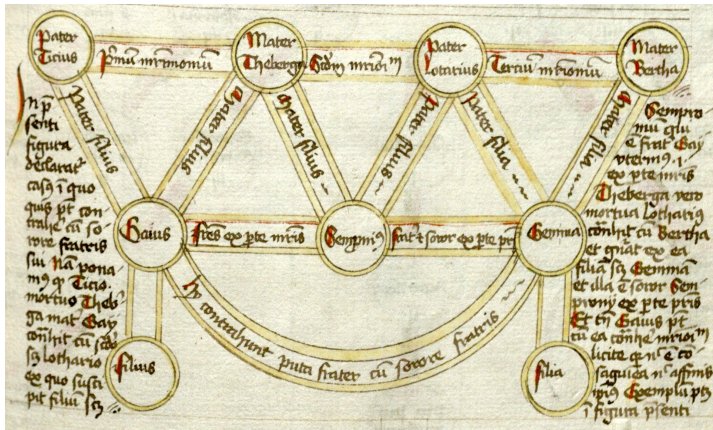 Pater
Ticius
Mater
Theberga
Pater
Lotarius
Mater
Bertha
Pͥmū mr̄imoniū
Scd̄m mr̄ioī
Terciū mr̄ioniū
Pater filius
Mater filius
Mater filius
Pater filius
Pater filia
Mater filia
Gaius
fr̄es ex ꝑte mr̄is
Sempꝛoniꝰ
frat̄ ⁊ soror ex ꝑte pr̄is
Gemma
contrahunt puta frater cū sorore fratris
filius
filia
In p̄
senti
figura
declarat᷑
casꝰ ī quo
quis pt̄ con
trah̄e cū so
rore fratris
sui Nā pona
mꝰ ꝙ Ticio
mortuo Theb̾
ga mat̾ Gay
con̄hit cū scd̄o
scꝫ lothario
ex quo susci
pit filiū scꝫ
Sempro
niū qui
ē frat̾ Gay
vterinꝰ .i.
ex ꝑte mr̄is
Theberga vero
mortua lothariꝰ
con̄hit cū Bertha
et gn̄at ex ea
filiā scꝫ Gemmā
et illa ē soror Sem
prony ex ꝑte pr̄is
Et tn̄ Gaius pt̄
cū ea con̄he mr̄ioīm
licite q̄ n̄ ē cō
saguīea n̄ affinis
ipiꝰ Exemplū ptꝫ
ī figura p̄senti